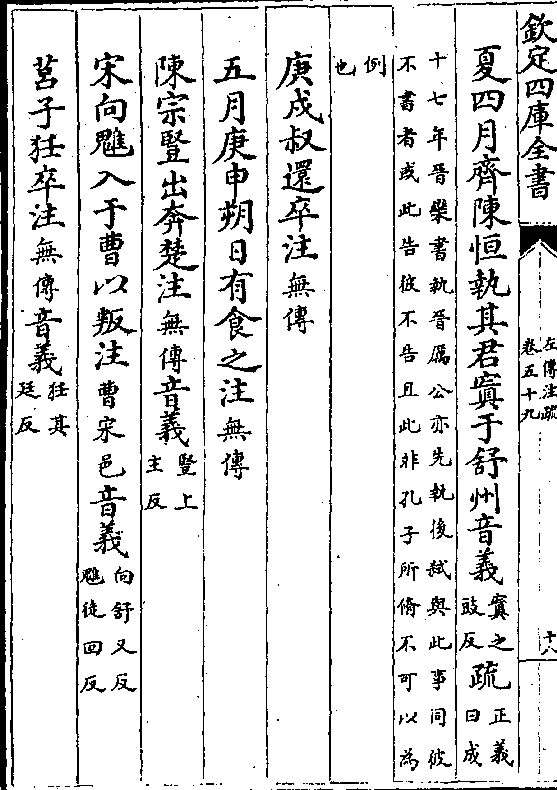 欽定四庫全書
左傳注疏
卷五十九
十八
夏四月齊陳恒執其君寘于舒州音義寘之豉反疏正義曰成
十七年晉欒書執晉厲公亦先執後弑與此事同彼
不書者或此告彼不告且此非孔子所脩不可以為
例也
庚戌叔還卒注無傳
五月庚申朔日有食之注無傳
陳宗豎出奔楚注無傳音義豎上主反
宋向魋入于曹以叛注曹宋邑音義向舒又反魋徒回反
莒子狂卒注無傳音義狂其廷反